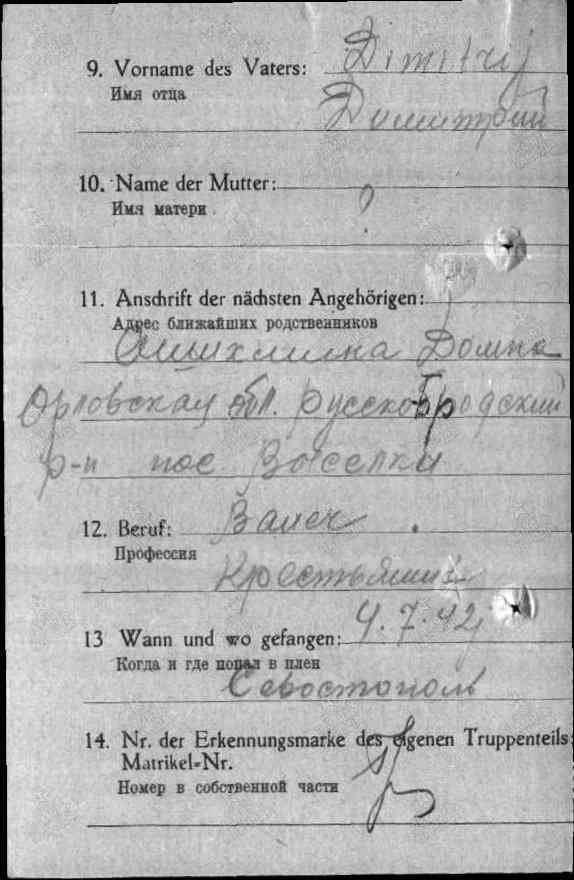 9. Vorname des Vaters: Dimitrij
Имя отца
Димитрий
10. Name der Mutter: ?
Имя матери
11. Anschrift der nächsten Angehörigen:
Адрес ближайших родственников
Домна
Орловская обл. Русско-Бродский
р-н пос Выселки
12. Beruf: Bauer.
Профессия
Крестьянин
13 Wann und wo gefangen: 4.7.42
Когда и где попал в плен
Севостополь
14. Nr. der Erkennungsmarke des eigenen Truppenteils:
Matrikel-Nr.
Номер в собственной части